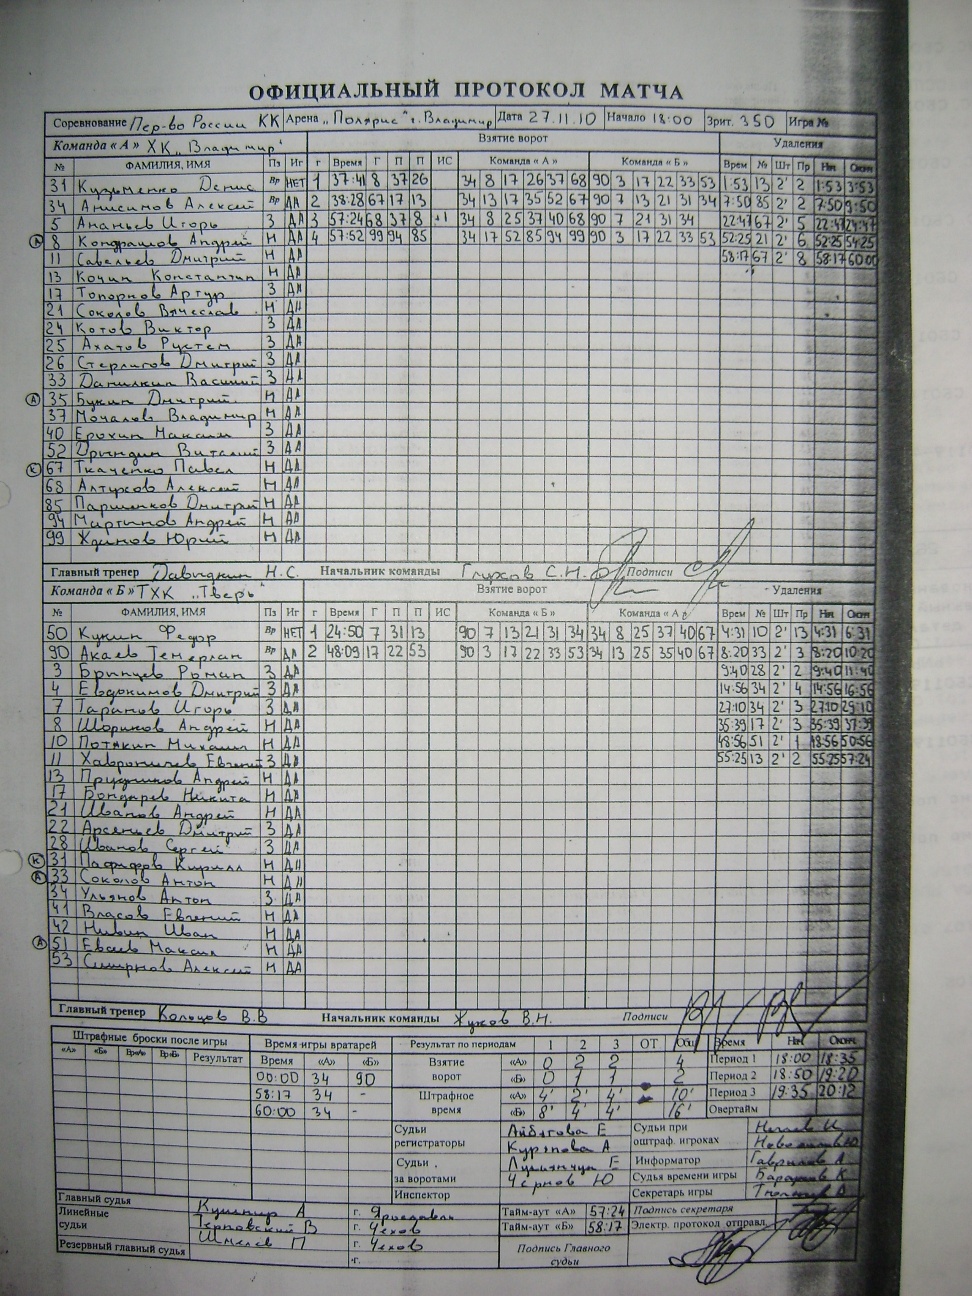 ОФИЦИАЛЬНЫЙ ПРОТОКОЛ МАТЧА
Соревнование Пер-во России КК Арена „Полярис" г. Владимир Дата 27.11.10 Начало 18:00 Зрит. 350 Игра №
Команда «А» ХК „Владимир" Взятие ворот Удаления
№ ФАМИЛИЯ, ИМЯ Пз Иг г Время Г П П ИС Команда « А » Команда « Б » Врем № Шт Пр Нач Окон
31 Кузьменко Денис Вр НЕТ 1 37:41 8 37 26 34 8 17 26 37 68 90 3 17 22 33 53 1:53 13 2' 2 1:53 3:53
34 Анисимов Алексей Вр ДА 2 38:28 67 17 13 34 13 17 35 52 67 90 7 13 21 31 34 7:50 85 2' 2 7:50 9:50
5 Ананьев Игорь З ДА 3 57:24 68 37 8 +1 34 8 25 37 40 68 90 7 21 31 34 22:47 67 2' 5 22:47 24:47
А 8 Кондрашов Андрей Н ДА 4 57:52 99 94 85 34 17 52 85 94 99 90 3 17 22 33 53 52:25 21 2' 6 52:25 54:25
11 Савельев Дмитрий Н ДА 58:17 67 2' 8 58:17 60:00
13 Кочин Константин Н ДА
17 Топорков Артур З ДА
21 Соколов Вячеслав Н ДА
24 Котов Виктор З ДА
25 Ахатов Рустем З ДА
26 Стерлигов Дмитрий З ДА
33 Данилкин Василий З ДА
А 35 Букин Дмитрий Н ДА
37 Мочалов Владимир Н ДА
40 Ерохин Максим З ДА
52 Виталий З ДА
К 67 Ткаченко Павел Н ДА
68 Алтухов Алексей Н ДА
85 Паршенков Дмитрий Н ДА
94 Мартынов Андрей Н ДА
99 Жданов Юрий Н ДА
Главный тренер Давыдкин Н.С. Начальник команды Глухов С.Н. Подписи
Команда « Б » ТХК „Тверь" Взятие ворот Удаления
№ ФАМИЛИЯ, ИМЯ Пз Иг г Время Г П П ИС Команда « Б » Команда « А » Врем № Шт Пр Нач Окон
50 Кукин Федор Вр НЕТ 1 24:50 7 31 13 90 7 13 21 31 34 34 8 25 37 40 67 4:31 10 2' 13 4:31 6:31
90 Акаев Темерлан Вр ДА 2 48:09 17 22 53 90 3 17 22 33 53 34 13 25 35 40 67 8:20 33 2' 3 8:20 10:20
3 Брынцев Роман З ДА 9:40 28 2' 2 9:40 11:40
4 Евдокимов Дмитрий З ДА 14:56 34 2' 4 14:56 16:56
7 Таранов Игорь З ДА 27:10 34 2' 3 27:10 29:10
8 Шориков Андрей Н ДА 35:39 17 2' 3 35:39 37:39
10 Потякин Михаил Н ДА 48:56 51 2' 1 48:56 50:56
11 Евгений З ДА 55:25 13 2' 2 55:25 57:24
13 Прудников Андрей Н ДА
17 Бондарев Никита Н ДА
21 Иванов Андрей Н ДА
22 Арсеньев Дмитрий З ДА
28 Иванов Сергей З ДА
К 31 Кирилл Н ДА
А 33 Соколов Антон Н ДА
34 Ульянов Антон З ДА
41 Власов Евгений Н ДА
42 Нивин Иван Н ДА
А 51 Евсеев Максим Н ДА
53 Смирнов Алексей Н ДА
Главный тренер Кольцов В.В Начальник команды Жуков В.Н. Подписи
Штрафные броски после игры Время игры вратарей Результат по периодам 1 2 3 ОТ Общ Время Нач Окон
«А» «Б» Вр«А» Вр«Б» Результат Время «А» «Б» Взятие ворот «А» 0 2 2 4 Период 1 18:00 18:35
00:00 34 90 «Б» 0 1 1 2 Период 2 18:50 19:20
58:17 34 - Штрафное время «А» 4' 2' 4' 10' Период 3 19:35 20:12
60:00 34 - «Б» 8' 4' 4' 16' Овертайм
Судьи регистраторы Е Курипова А Судьи при оштраф. игроках
Судьи за воротами Е Чернов Ю Информатор Гаврилов А
Судья времени игры К
Инспектор Секретарь игры
Главный судья Кушнир А г. Ярославль Тайм-аут «А» 57:24 Подпись секретаря
Линейные судьи Терновский В г. Чехов Тайм-аут «Б» 58:17 Электр. протокол отправл.
Шмелев П г. Чехов
Резервный главный судья г. Подпись Главного судьи